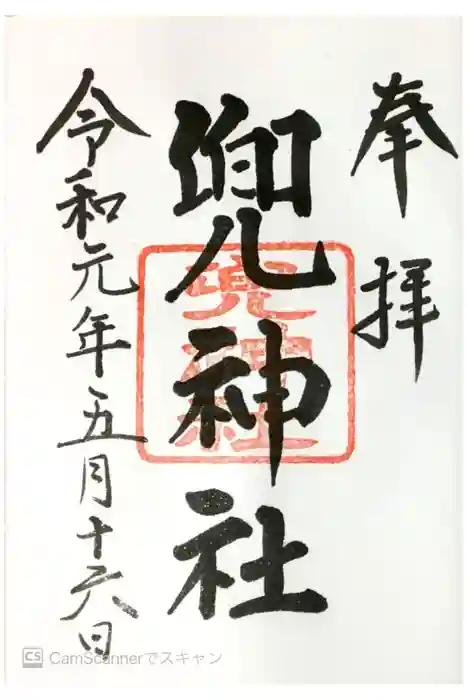 奉拝
兜神社
兜神社
令和元年五月十六日
CS CamScannerでスキャン